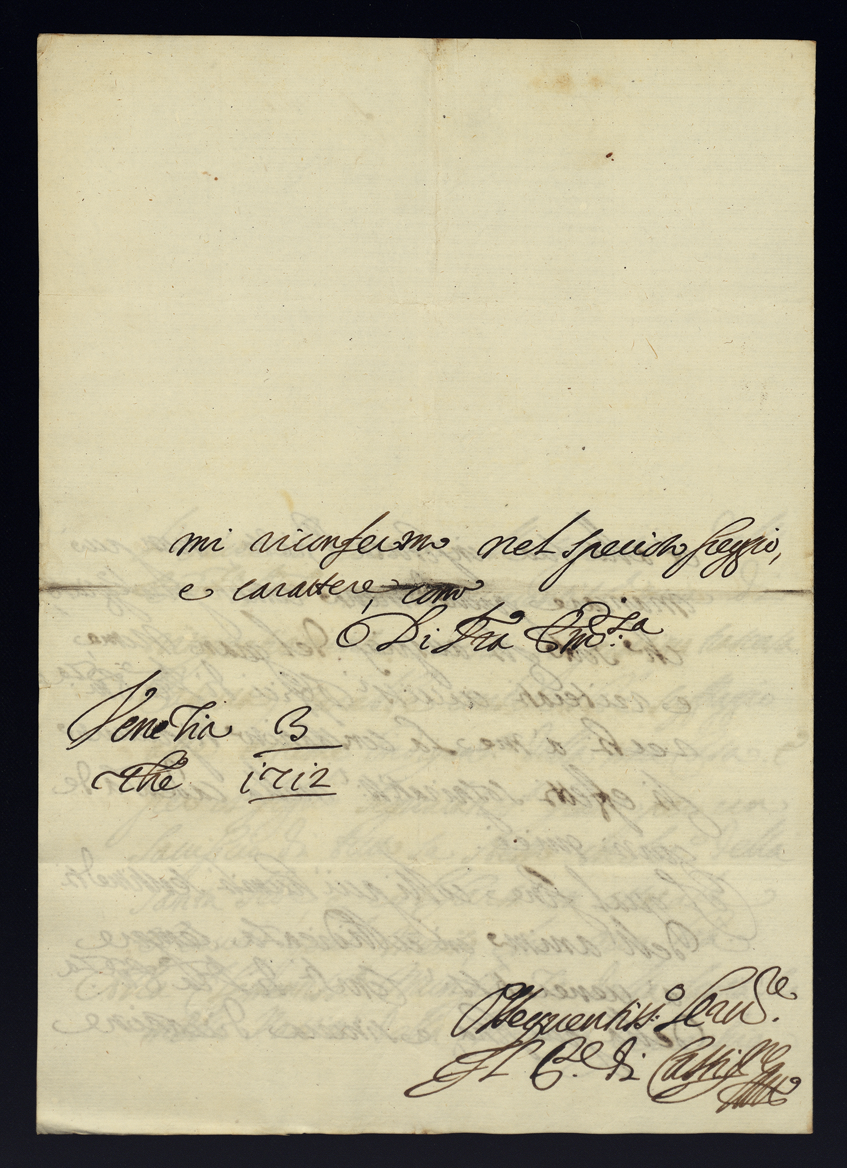 mi riconfermo nel specioso freggio,
e carattere, como
Di Vra Emza
Venetia 3
1712
Obbequentiss:o Seru.re
Il C.e di Castig.ne